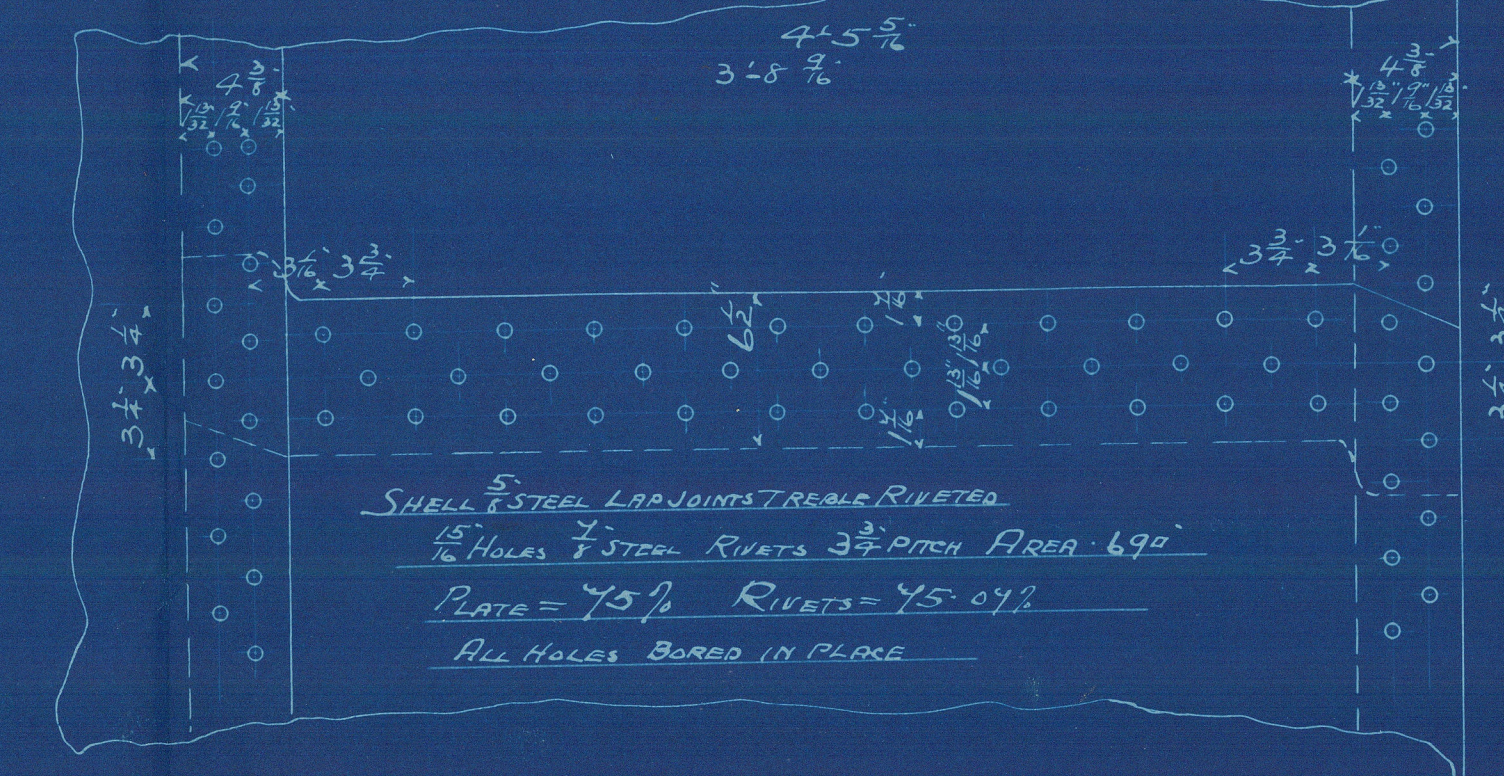 4'-5 5/16"
3'-8 9/16"
4 3/8"
1 13/32" 1 9/16" 1 13/32"
4 3/8"
1 13/32" 1 9/16" 1 13/32"
3 1/16" 3 3/4"
3 3/4" 3 1/16"
3 1/4" 3 1/4"
6 1/2"
1 7/16"
1 13/16" 1 13/16"
1 7/16"
3 1/4" 3 1/4"
SHELL 5/8" STEEL LAP JOINTS TREBLE RIVETED
15/16" HOLES 7/8" STEEL RIVETS 3 3/4" PITCH AREA .69□"
PLATE = 75% RIVETS = 75.04%
ALL HOLES BORED IN PLACE